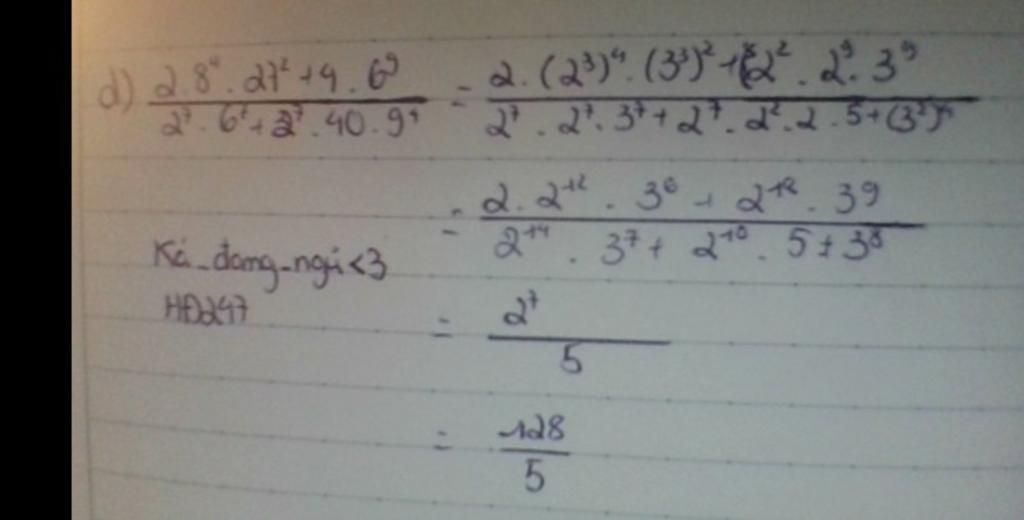 d) \frac{2.8^4 . 27^2 + 4 . 6^9}{2^7 . 6^7 + 2^7 . 40 . 9^4} = \frac{2 . (2^3)^4 . (3^3)^2 + 2^2 . 2^9 . 3^9}{2^7 . 2^7 . 3^7 + 2^7 . 2^2 . 2 . 5 + (3^2)^4}
= \frac{2 . 2^{12} . 3^6 + 2^{12} . 39}{2^{14} . 3^7 + 2^{10} . 5 + 3^8}
Kẻ_đang_ngủ<3
HĐ247
= \frac{2^7}{5}
= \frac{128}{5}